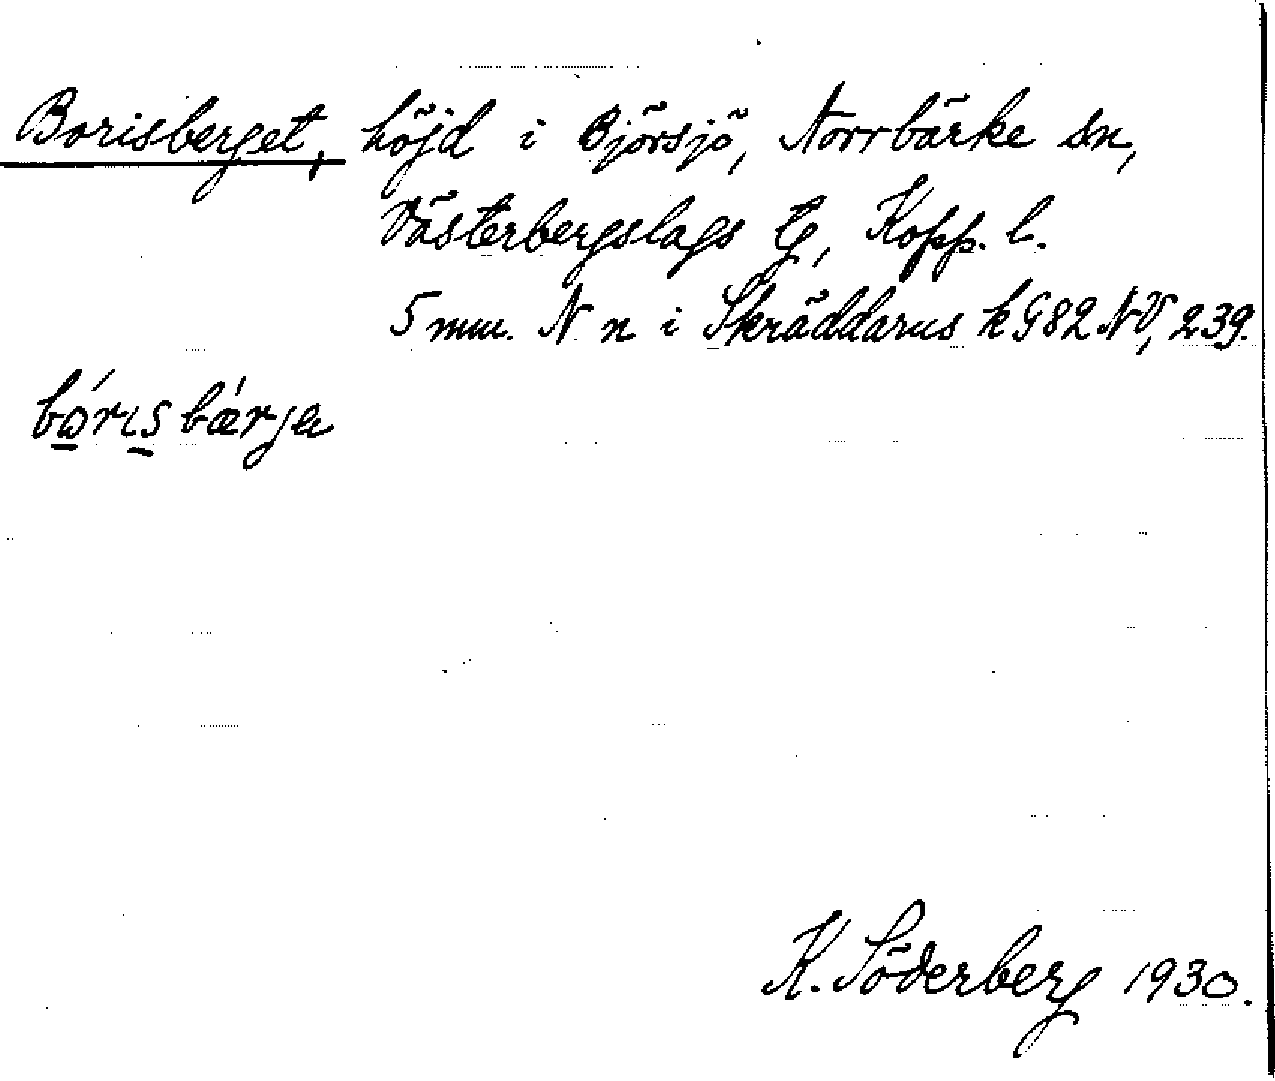 Borisberget, höjd i Björsjö, Norrbärke sn,
Västerbergslags tg, Kopp. l.
5 mm. N n i Skräddarus k G82 NV, 239.
bórɩs bǽrjɐ
K. Söderberg 1930.